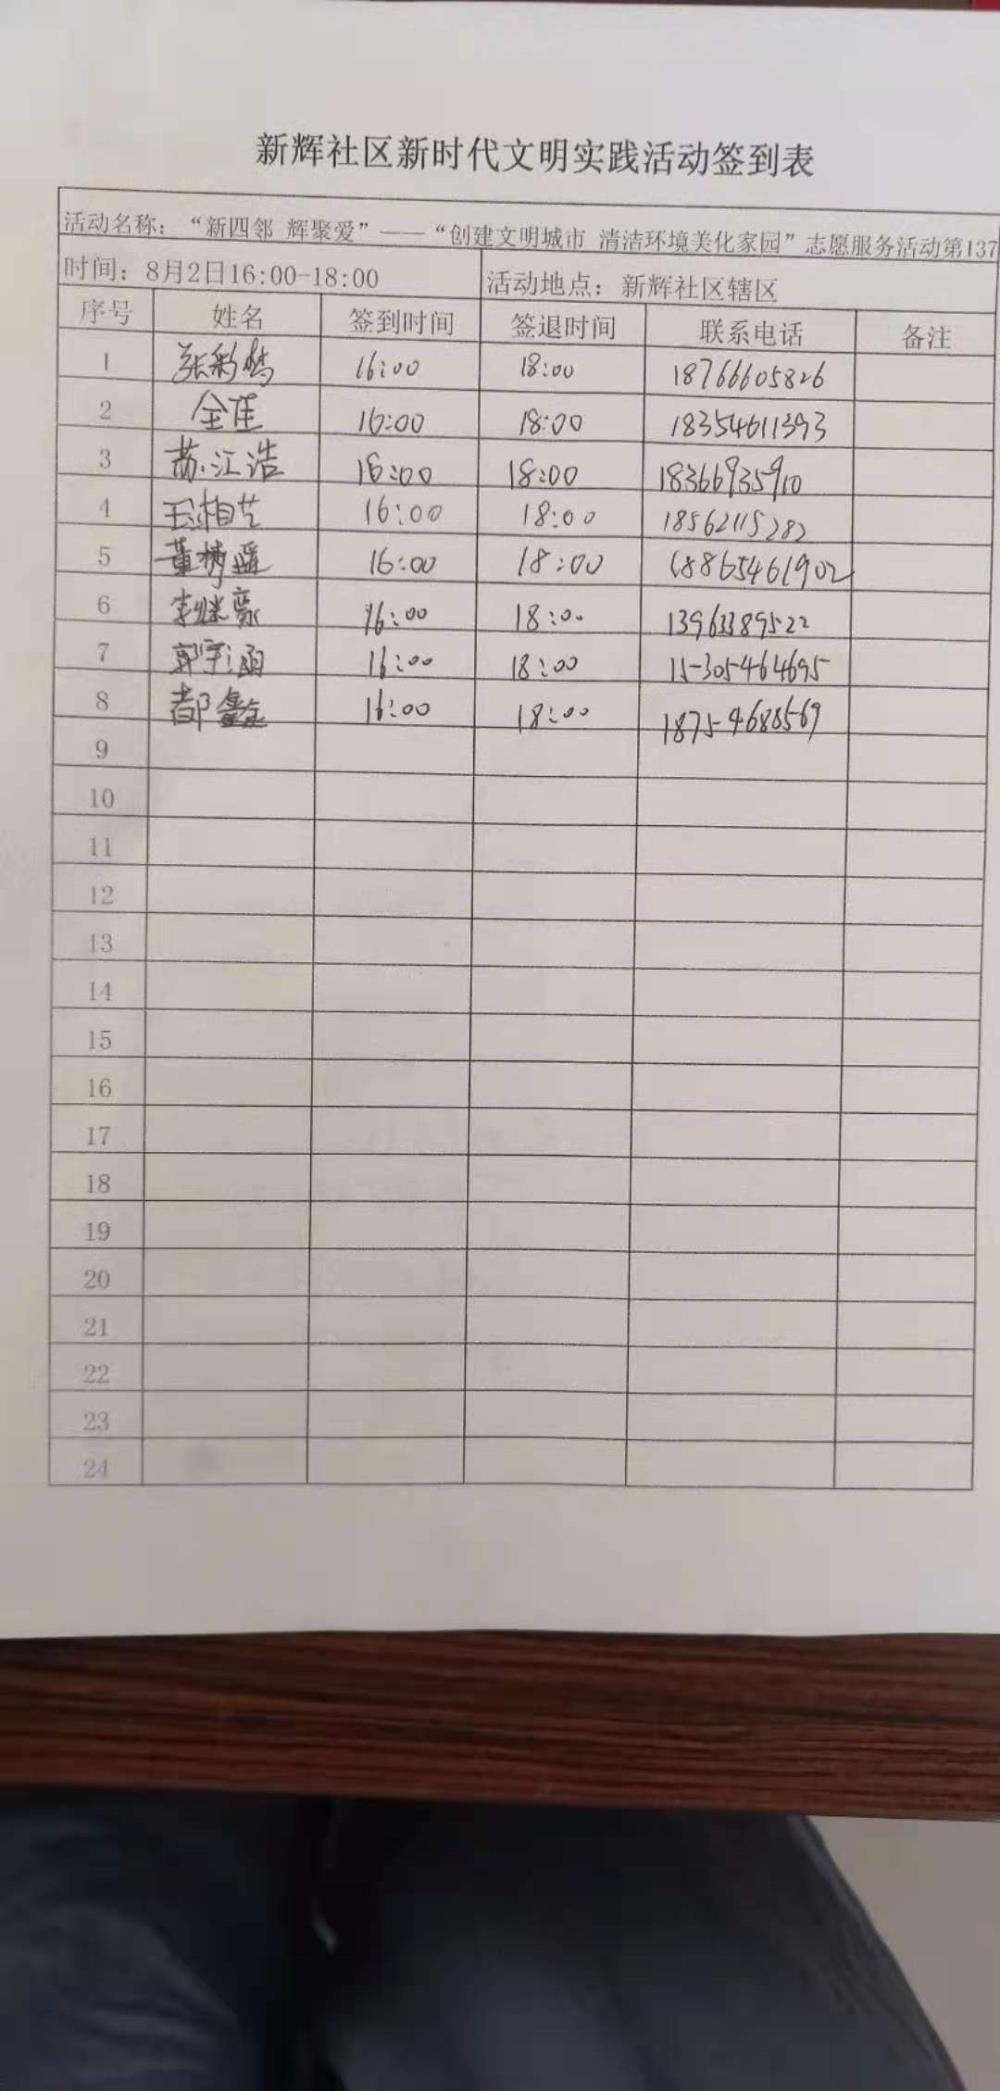 新辉社区新时代文明实践活动签到表
活动名称：“新四邻 辉聚爱”——“创建文明城市 清洁环境美化家园”志愿服务活动第137
时间：8月2日16:00-18:00 活动地点：新辉社区辖区
序号 姓名 签到时间 签退时间 联系电话 备注
1 张彩 16:00 18:00 18766605826
2 全佳 16:00 18:00 18354611393
3 苏江浩 16:00 18:00 18366935910
4 王相芝 16:00 18:00 18562115282
5 董 16:00 18:00 18865461902
6 李继豪 16:00 18:00 13963389522
7 郭宇涵 16:00 18:00 15305464695
8 都鑫 16:00 18:00 18754688569
9
10
11
12
13
14
15
16
17
18
19
20
21
22
23
24